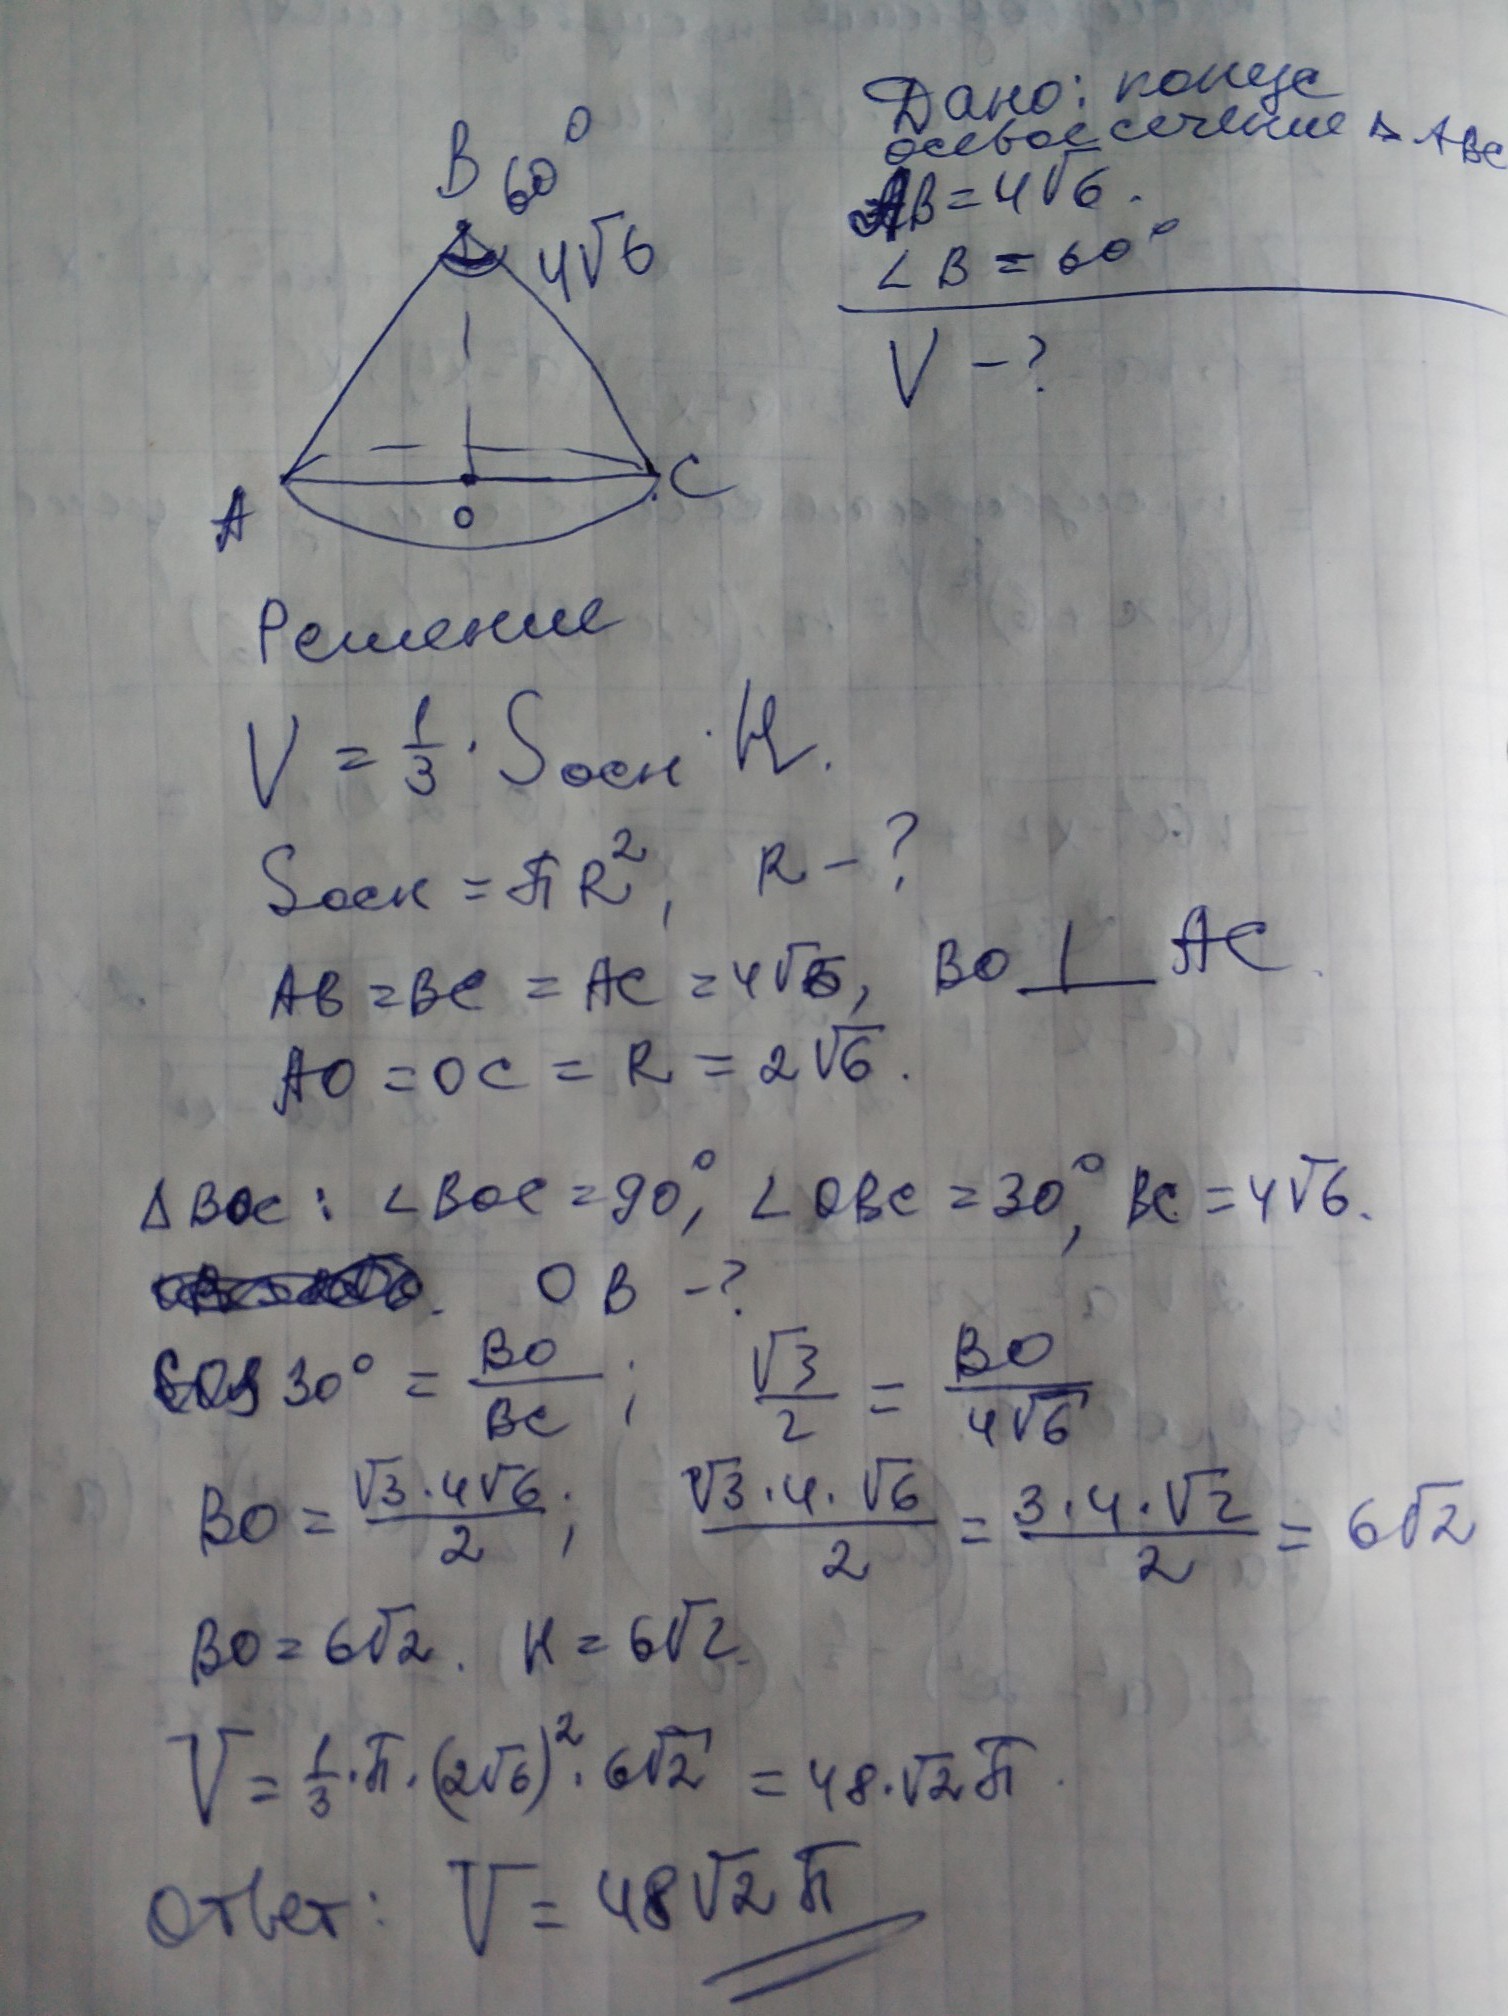 Дано: конус
осевое сечение △ ABC
AB = 4√6.
∠ B = 60°
V – ?
B 60°
4√6
A
O
C
Решение
V = 1/3 · Sосн · H.
Sосн = πR², R – ?
AB = BC = AC = 4√6, BO ⊥ AC.
AO = OC = R = 2√6.
△ BOC : ∠ BOC = 90°, ∠ OBC = 30°, BC = 4√6.
OB – ?
cos 30° = BO/BC ; √3/2 = BO/4√6
BO = √3·4√6/2 ; √3·4·√6/2 = 3·4·√2/2 = 6√2
BO = 6√2. H = 6√2.
V = 1/3 · π · (2√6)² · 6√2 = 48·√2 π.
Ответ: V = 48√2 π